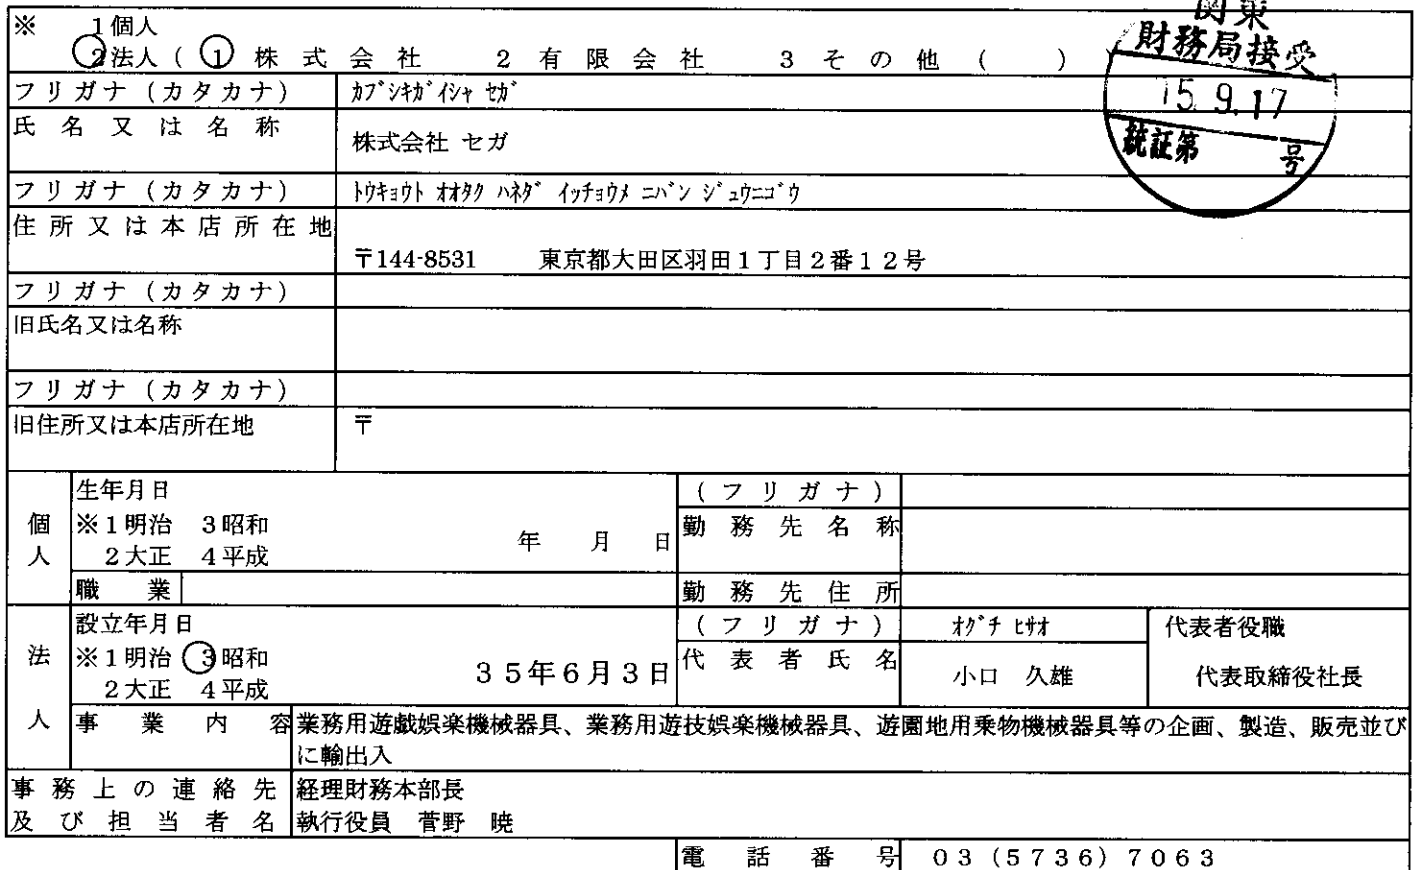 ※ 1個人
2法人(1 株式会社 2有限会社 3その他( ))
関東
財務局接受
15.9.17
統証第 号
フリガナ(カタカナ) カブシキガイシャ セガ
氏名又は名称 株式会社 セガ
フリガナ(カタカナ) トウキョウト オオタク ハネダ イッチョウメ ニバン ジュウニゴウ
住所又は本店所在地
〒144-8531 東京都大田区羽田1丁目2番12号
フリガナ(カタカナ)
旧氏名又は名称
フリガナ(カタカナ)
旧住所又は本店所在地 〒
個人
生年月日
※1明治 3昭和
2大正 4平成
年 月 日
職業
(フリガナ)
勤務先名称
勤務先住所
法人
設立年月日
※1明治 3昭和
2大正 4平成
35年6月3日
(フリガナ) オグチ ヒサオ
代表者氏名 小口 久雄
代表者役職
代表取締役社長
事業内容 業務用遊戯娯楽機械器具、業務用遊技娯楽機械器具、遊園地用乗物機械器具等の企画、製造、販売並び
に輸出入
事務上の連絡先 経理財務本部長
及び担当者名 執行役員 菅野 暁
電話番号 03(5736)7063